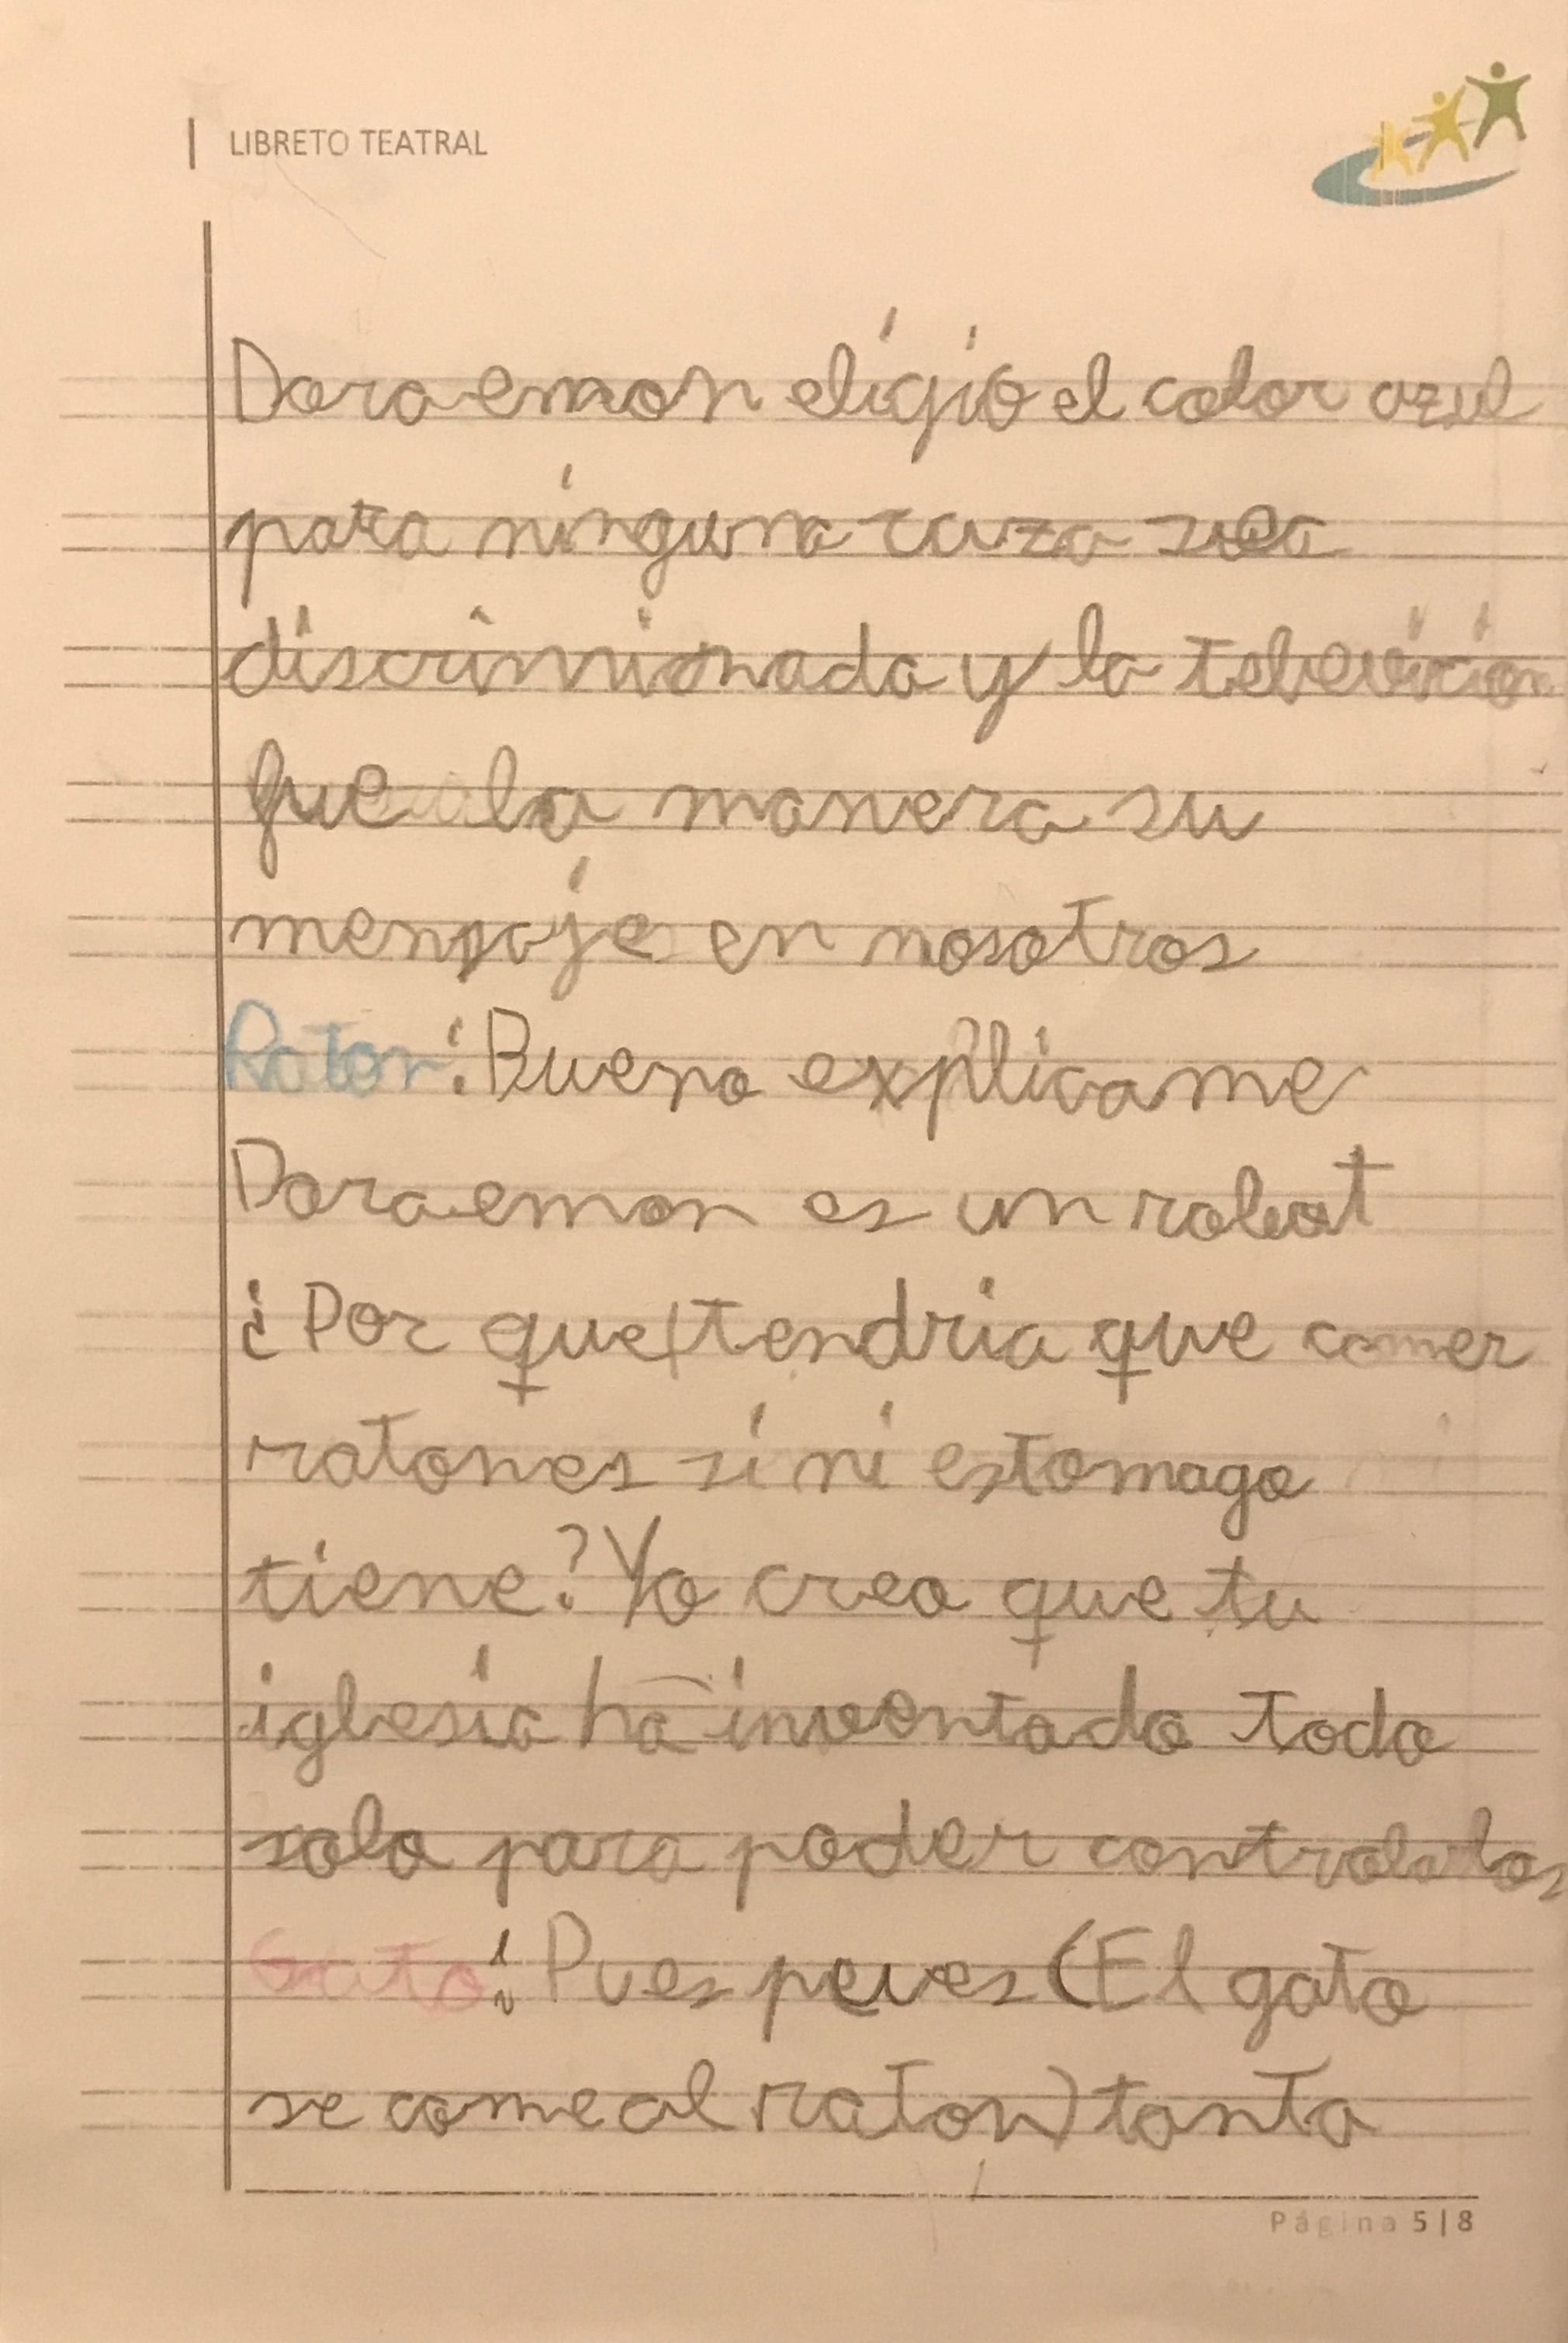 LIBRETO TEATRAL
Doraemon eligió el color azul
para ninguna raza sea
discriminada y la televicion
fue la manera su
mensaje en nosotros
Raton: Bueno explicame
Doraemon es un robot
¿Por que tendria que comer
ratones si ni estomago
tiene? Yo creo que tu
iglesia ha inventado todo
solo para poder controlarlos
Gato: Pues peues (El gato
se come al raton) tanta
Página 5|8